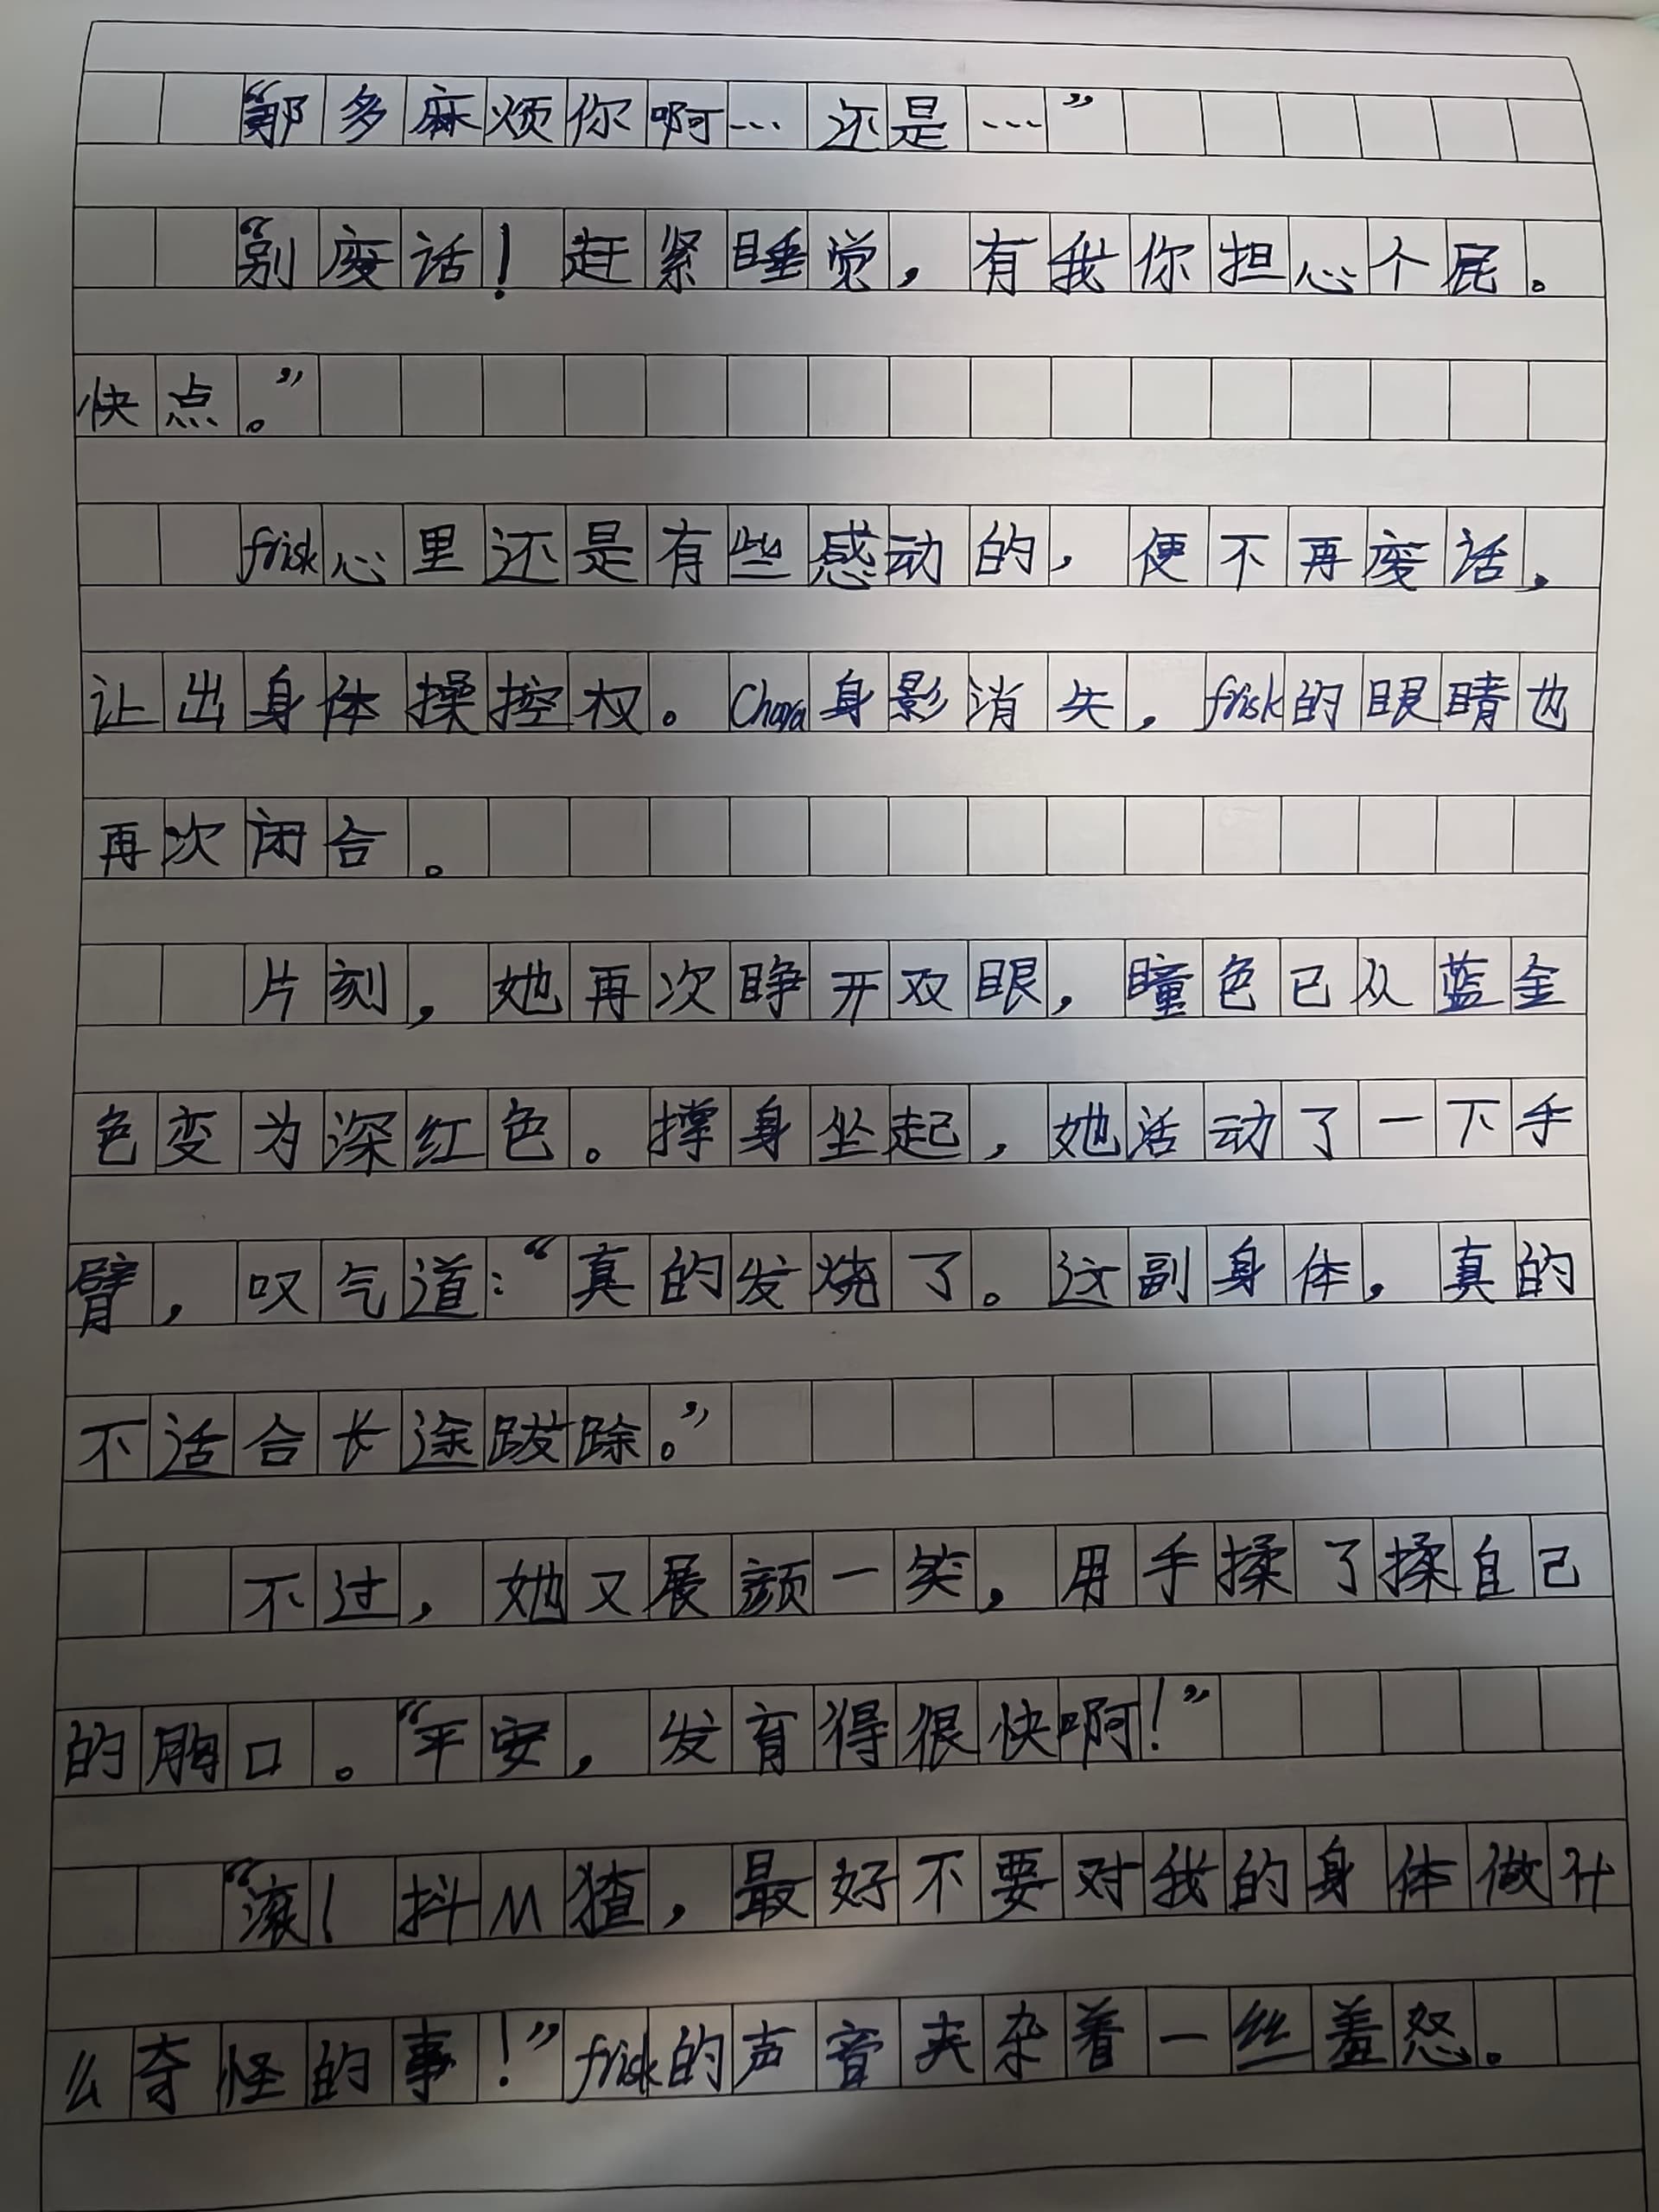 “那多麻烦你啊…还是…”
“别废话！赶紧睡觉，有我你担心个屁。
快点。”
frisk心里还是有些感动的，便不再废话，
让出身体操控权。Chara身影消失，frisk的眼睛也
再次闭合。
片刻，她再次睁开双眼，瞳色已从蓝金
色变为深红色。撑身坐起，她活动了一下手
臂，叹气道：“真的发烧了。这副身体，真的
不适合长途跋涉。”
不过，她又展颜一笑，用手揉了揉自己
的胸口。“平安，发育得很快啊！”
“滚！抖M猹，最好不要对我的身体做什
么奇怪的事！”frisk的声音夹杂着一丝羞怒。